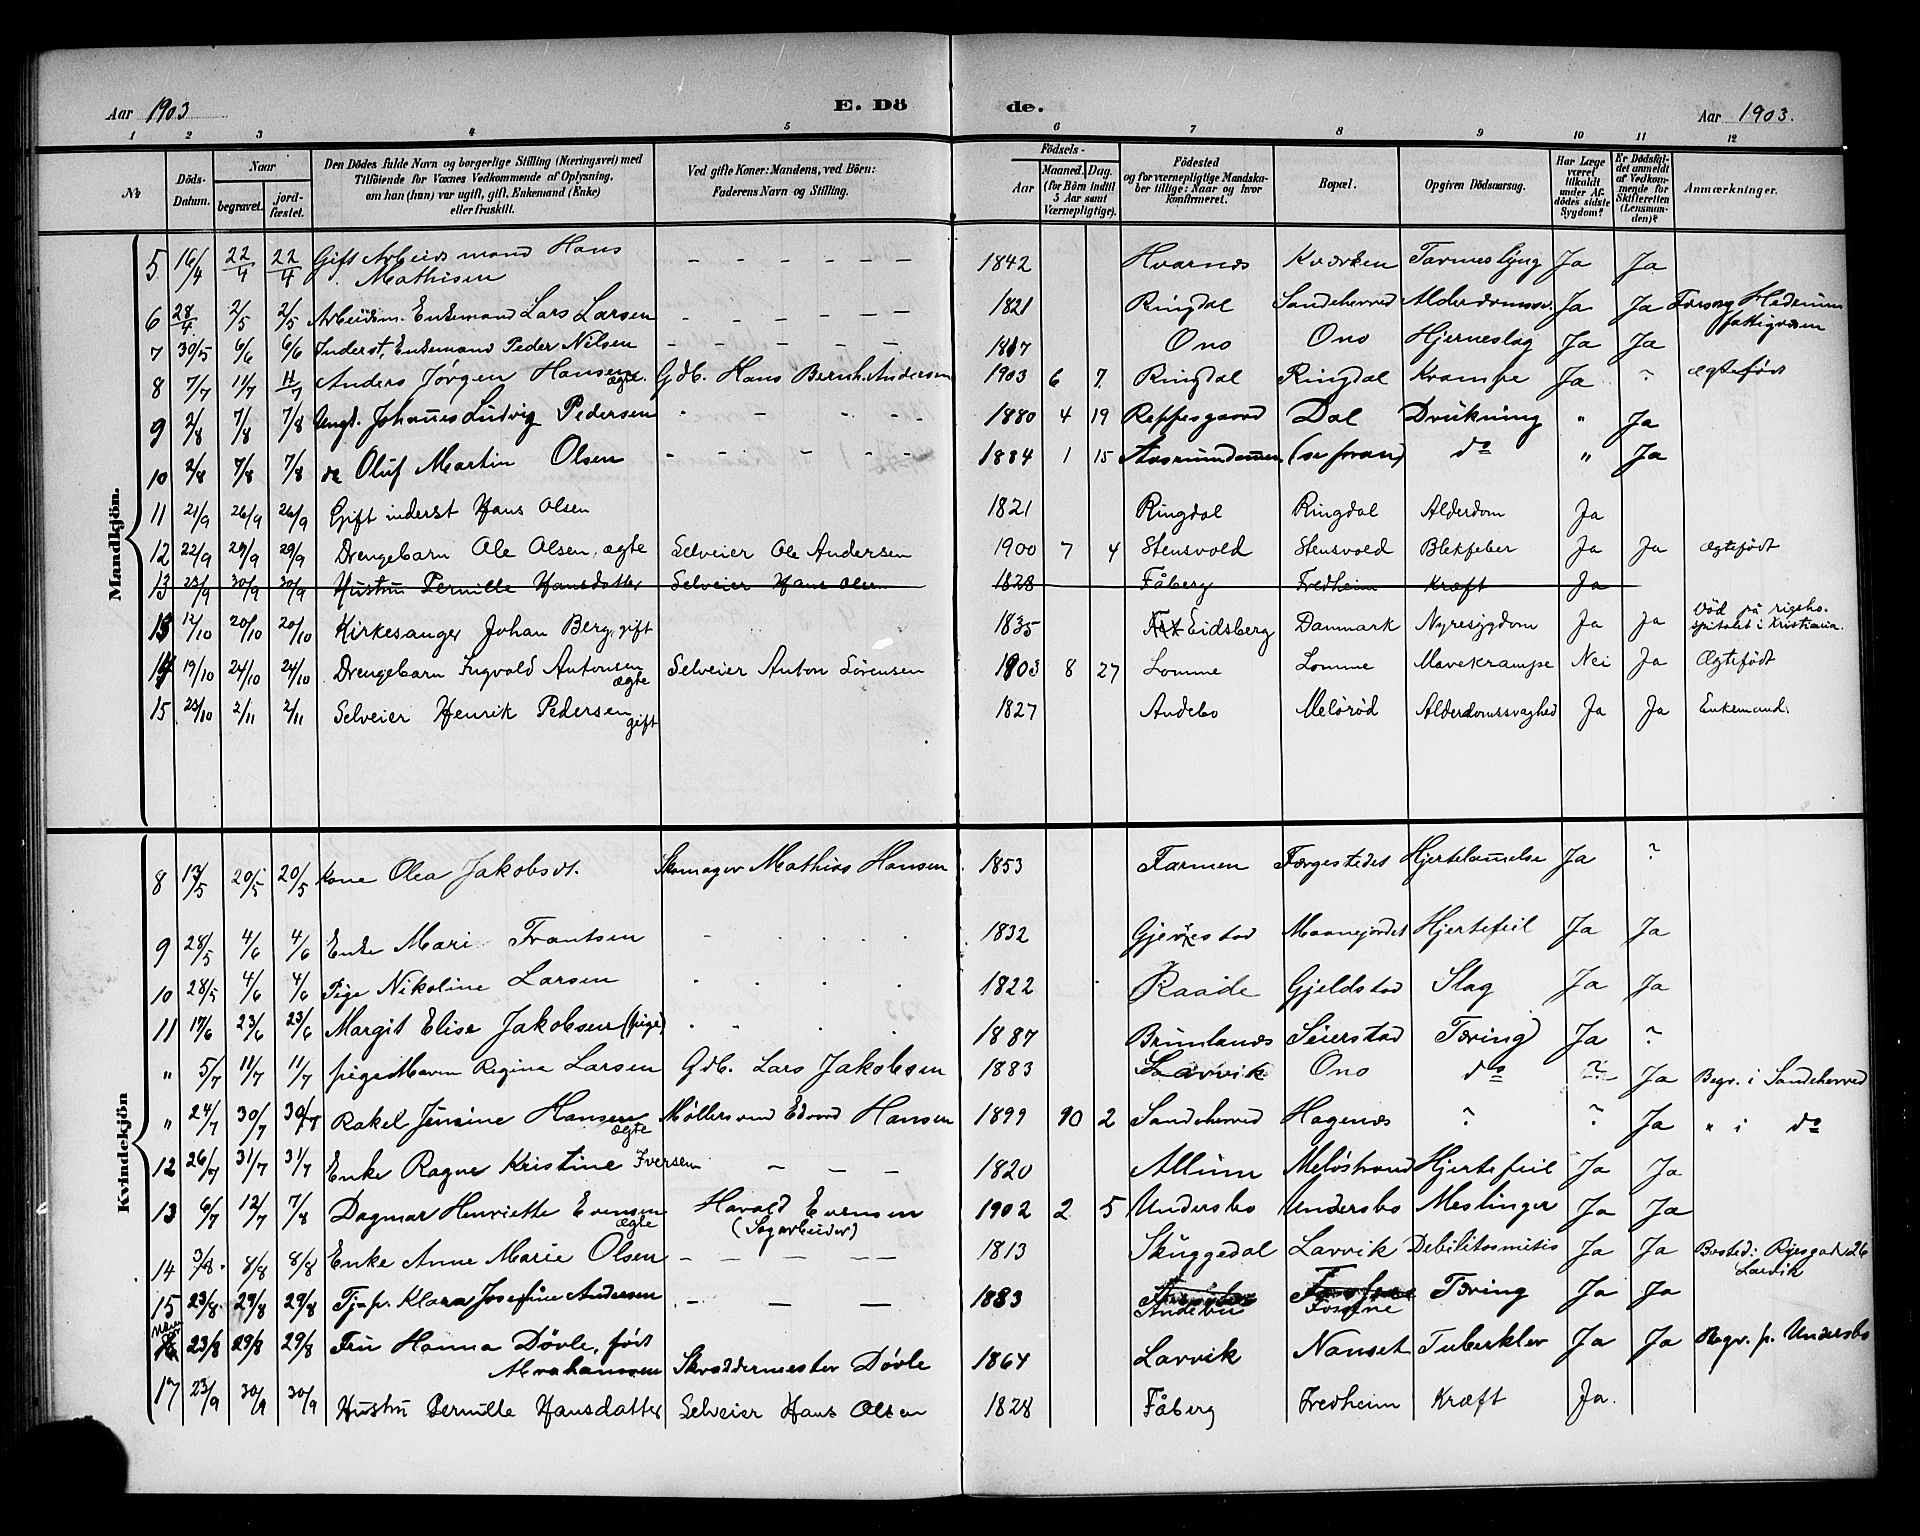 Aar 1903
E. Dö
de.
Aar 1903.
1 2 3 4 5 6 7 8 9 10 11 12
№
Döds-Datum.
Naar
begravet.
jord-fæstet.
Den Dödes fulde Navn og borgerlige Stilling (Næringsvei) med
Tilföiende for Voxnes Vedkommende af Oplysning,
om han (hun) var ugift, gift, Enkemand (Enke)
eller fraskilt.
Ved gifte Koner: Mandens, ved Börn:
Faderens Navn og Stilling.
Födsels-
Aar
Maaned. Dag.
(for Börn indtil
5 Aar samt
Værnepligtige).
Födested
og for værnepligtige Mandska-
ber tillige: Naar og hvor
konfirmeret.
Bopæl.
Opgiven Dödsaarsag.
Har Læge
været
tilkaldt
under Af-
dödes sidste
Sygdom?
Er Dödsfal-
det anmeldt
af Vedkom-
mende for
Skifteretten
(Lensman-
den)?
Anmærkninger.
Mandkjön.
5 16/4 22/4 22/4 Gift Arbeidsmand Hans Mathisen – – – – – 1842 Hvarnes Kværken Tarmeslyng Ja Ja
6 28/4 2/5 2/5 Arbeidsm. Enkemand Lars Larsen – – – – – 1821 Ringdal Sandeherred Alderdomssv. Ja Ja Forsørg Hedrum fattigvæsen
7 30/5 6/6 6/6 Inderst, Enkemand Peder Nilsen – – – – – 1817 Ono Ono Hjerneslag Ja Ja
8 7/7 11/7 11/7 Anders Jørgen Hansen ægte. Gdb. Hans Bernh. Andersen 1903 6 7 Ringdal Ringdal Krampe Ja ? Ægtefødt
9 2/8 7/8 7/8 Ungk. Johannes Ludvig Pedersen - – - - 1880 4 19 Reppesgaard Dal Drukning " Ja
10 2/8 7/8 7/8 do Oluf Martin Olsen - - - - - 1884 1 15 (se foran) do " Ja
11 21/9 26/9 26/9 Gift inderst Hans Olsen 1821 Ringdal Ringdal Alderdom Ja
12 22/9 29/9 29/9 Drengebarn Ole Olsen, ægte Selveier Ole Andersen 1900 7 4 Stensvold Stensvold Blekfeber Ja Ja Ægtefødt
13 23/9 30/9 30/9 Hustru Pernille Hansdatter Selveier Hans Olsen 1828 Fåberg Fredheim Kræft Ja
13 12/10 20/10 20/10 Kirkesanger Johan Berg, gift 1835 Eidsberg Danmark Nyresygdom Ja Ja Död på rigsho-spitalet i Kristiania.
14 19/10 24/10 24/10 Drengebarn Ingvald Antonsen ægte Selveier Anton Sörensen 1903 8 27 Lomme Lomme Mavekrampe Nei Ja Ægtefødt
15 23/10 2/11 2/11 Selveier Henrik Pedersen gift 1827 Andebo Melöröd Alderdomssvaghed Ja Ja Enkemand.
Kvindekjön
8 13/5 20/5 20/5 Kone Olea Jakobsdt. Skomager Mathias Hansen 1853 Farmen Færgestedet Hjertelammelse Ja ?
9 28/5 4/6 4/6 Enke Mari Frantsen - . . . . 1832 Gjerestad Maanejordet Hjertefeil Ja Ja
10 28/5 4/6 4/6 Pige Nikoline Larsen . . . . 1822 Raade Gjeldstad Slag Ja Ja
11 17/6 23/6 23/6 Margit Elise Jakobsen (pige) . . . . 1887 Brunlanes Seierstad Tæring Ja ?
" 5/7 11/7 11/7 pige Maren Regine Larsen Gdb. Lars Jakobsen 1883 Larvik Ono do ? Ja Begr. i Sandeherred
" 24/7 30/7 30/7 Rakel Jensine Hansen ægte Møllersvend Edvard Hansen 1899 10 2 Sandeherred Hagenæs ? ? Ja " i do
12 26/7 31/7 31/7 Enke Ragne Kristine Iversen – – – 1820 Allum Meløstrand Hjertefeil Ja Ja
13 6/7 12/7 7/8 Dagmar Henriette Evensen ægte Harald Evensen (Sagarbeider) 1902 2 5 Undersbo Undersbo Meslinger Ja Ja
14 3/8. 8/8 8/8 Enke Anne Marie Olsen – – – – – 1813 Skuggedal Larvik Debilitas senilis Ja Ja Bosted: Ryesgade 26 Larvik
15 23/8 29/8 29/8 Tj-p. Klara Josefine Andersen - – – 1883 Andebu Fosane Tæring Ja Ja
23/8 29/8 29/8 Fru Hanna Dövle, født Abrahamsen Skræddermester Dövle 1864 Larvik Nanset Tuberkler Ja Ja Begr. p. Undersbo
17 23/9 30/9 30/9 Hustru Pernille Hansdatter Selveier Hans Olsen 1828 Fåberg Fredheim Kræft Ja.